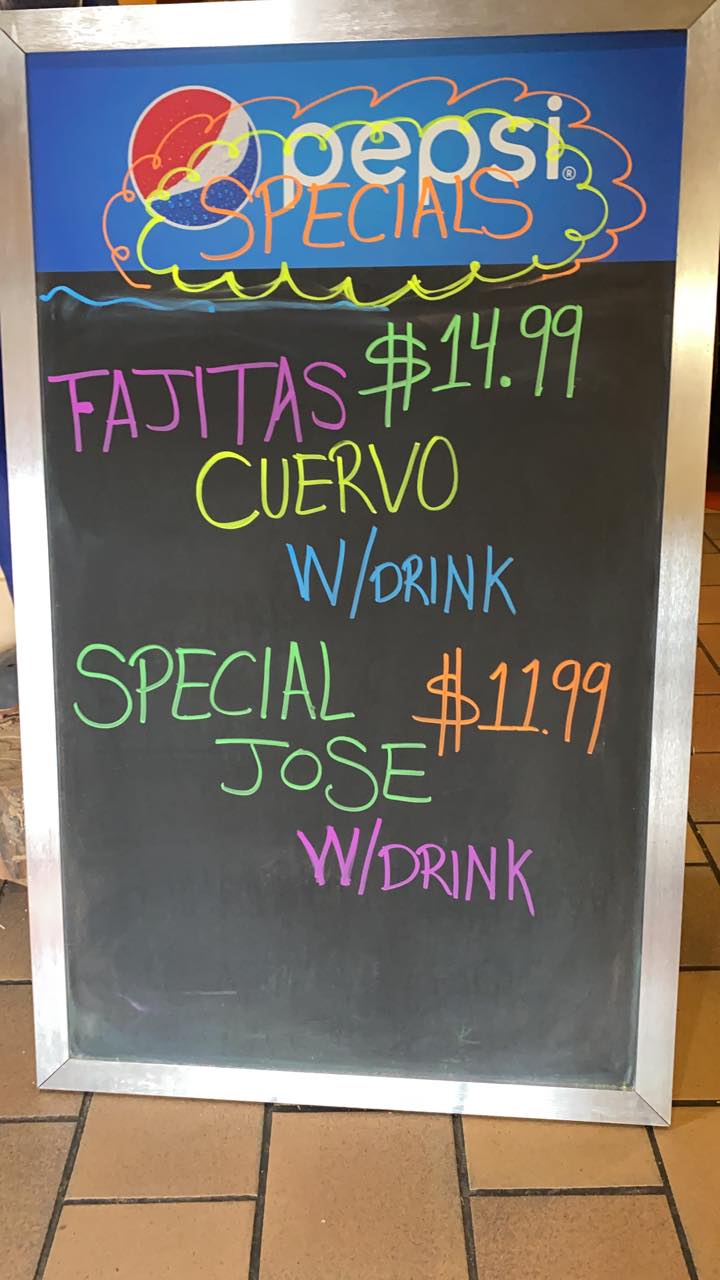 pepsi®
SPECIALS
FAJITAS $14.99
CUERVO
W/DRINK
SPECIAL $11.99
JOSE
W/DRINK